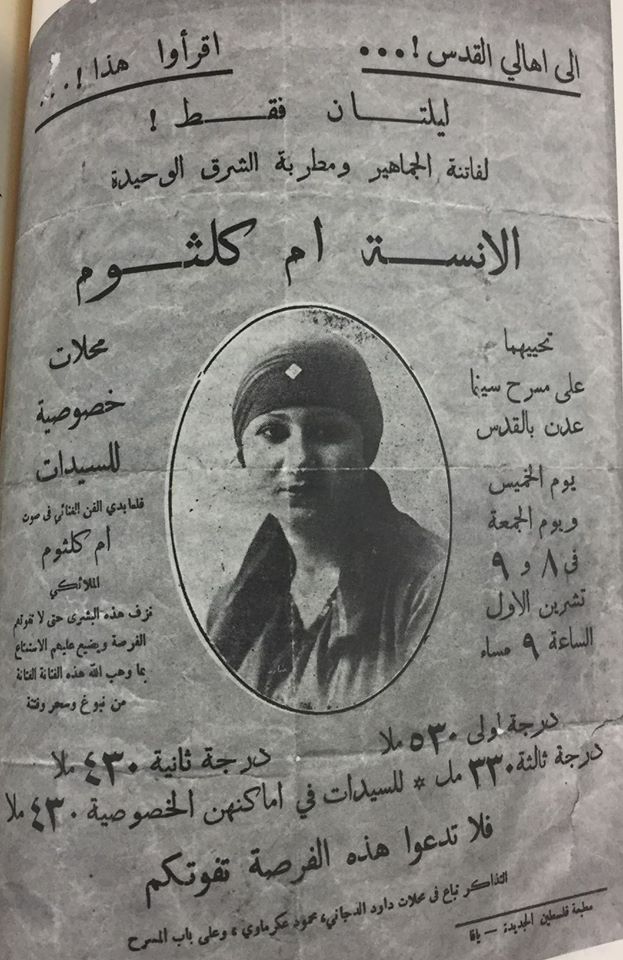 الى اهالي القدس !... اقرأوا هذا !...
ليلتـــان فقـــط !
لفاتنة الجماهير ومطربة الشرق الوحيدة
الانســـة ام كلثـــوم
تحييهما
على مسرح سينما
عدن بالقدس
يوم الخميس
ويوم الجمعة
فى ٨ و ٩
تشرين الاول
الساعة ٩ مساء
محلات
خصوصية
للسيدات
الفن الغنائي فى صوت
ام كلثوم
الملائكي
نزف هذه البشرى حتى لا تفوتهم
الفرصة ويضيع عليهم الاستمتاع
بما وهب الله هذه الفنانة الفتانة
من نبوغ وسحر وفتنة
درجة اولى ٥٣٠ ملا درجة ثانية ٤٣٠ ملا
درجة ثالثة ٣٣٠ مل * للسيدات في اماكنهن الخصوصية ٤٣٠ ملا
فلا تدعوا هذه الفرصة تفوتكم
التذاكر تباع فى محلات داود الدجاني، محمود عكرماوي، وعلى باب المسرح
مطبعة فلسطين الجديدة — يافا